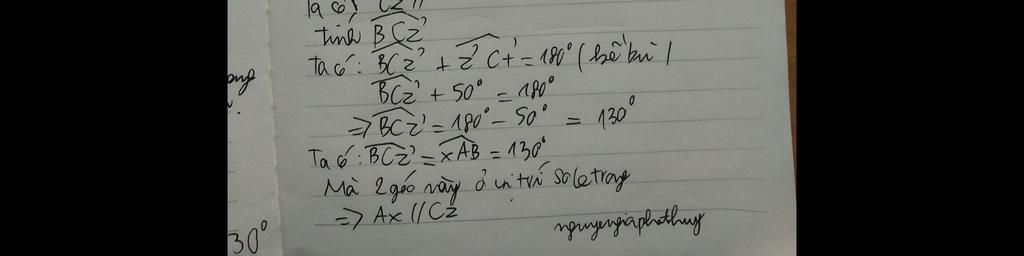 Ta có: Cz //
tính BCz'
Ta có: BCz' + z'Ct' = 180° (kề bù)
BCz' + 50° = 180°
=> BCz' = 180° - 50° = 130°
Ta có: BCz' = xAB = 130°
Mà 2 góc này ở vị trí so le trong
=> Ax // Cz
nguyengiaphathuy
ong
30°